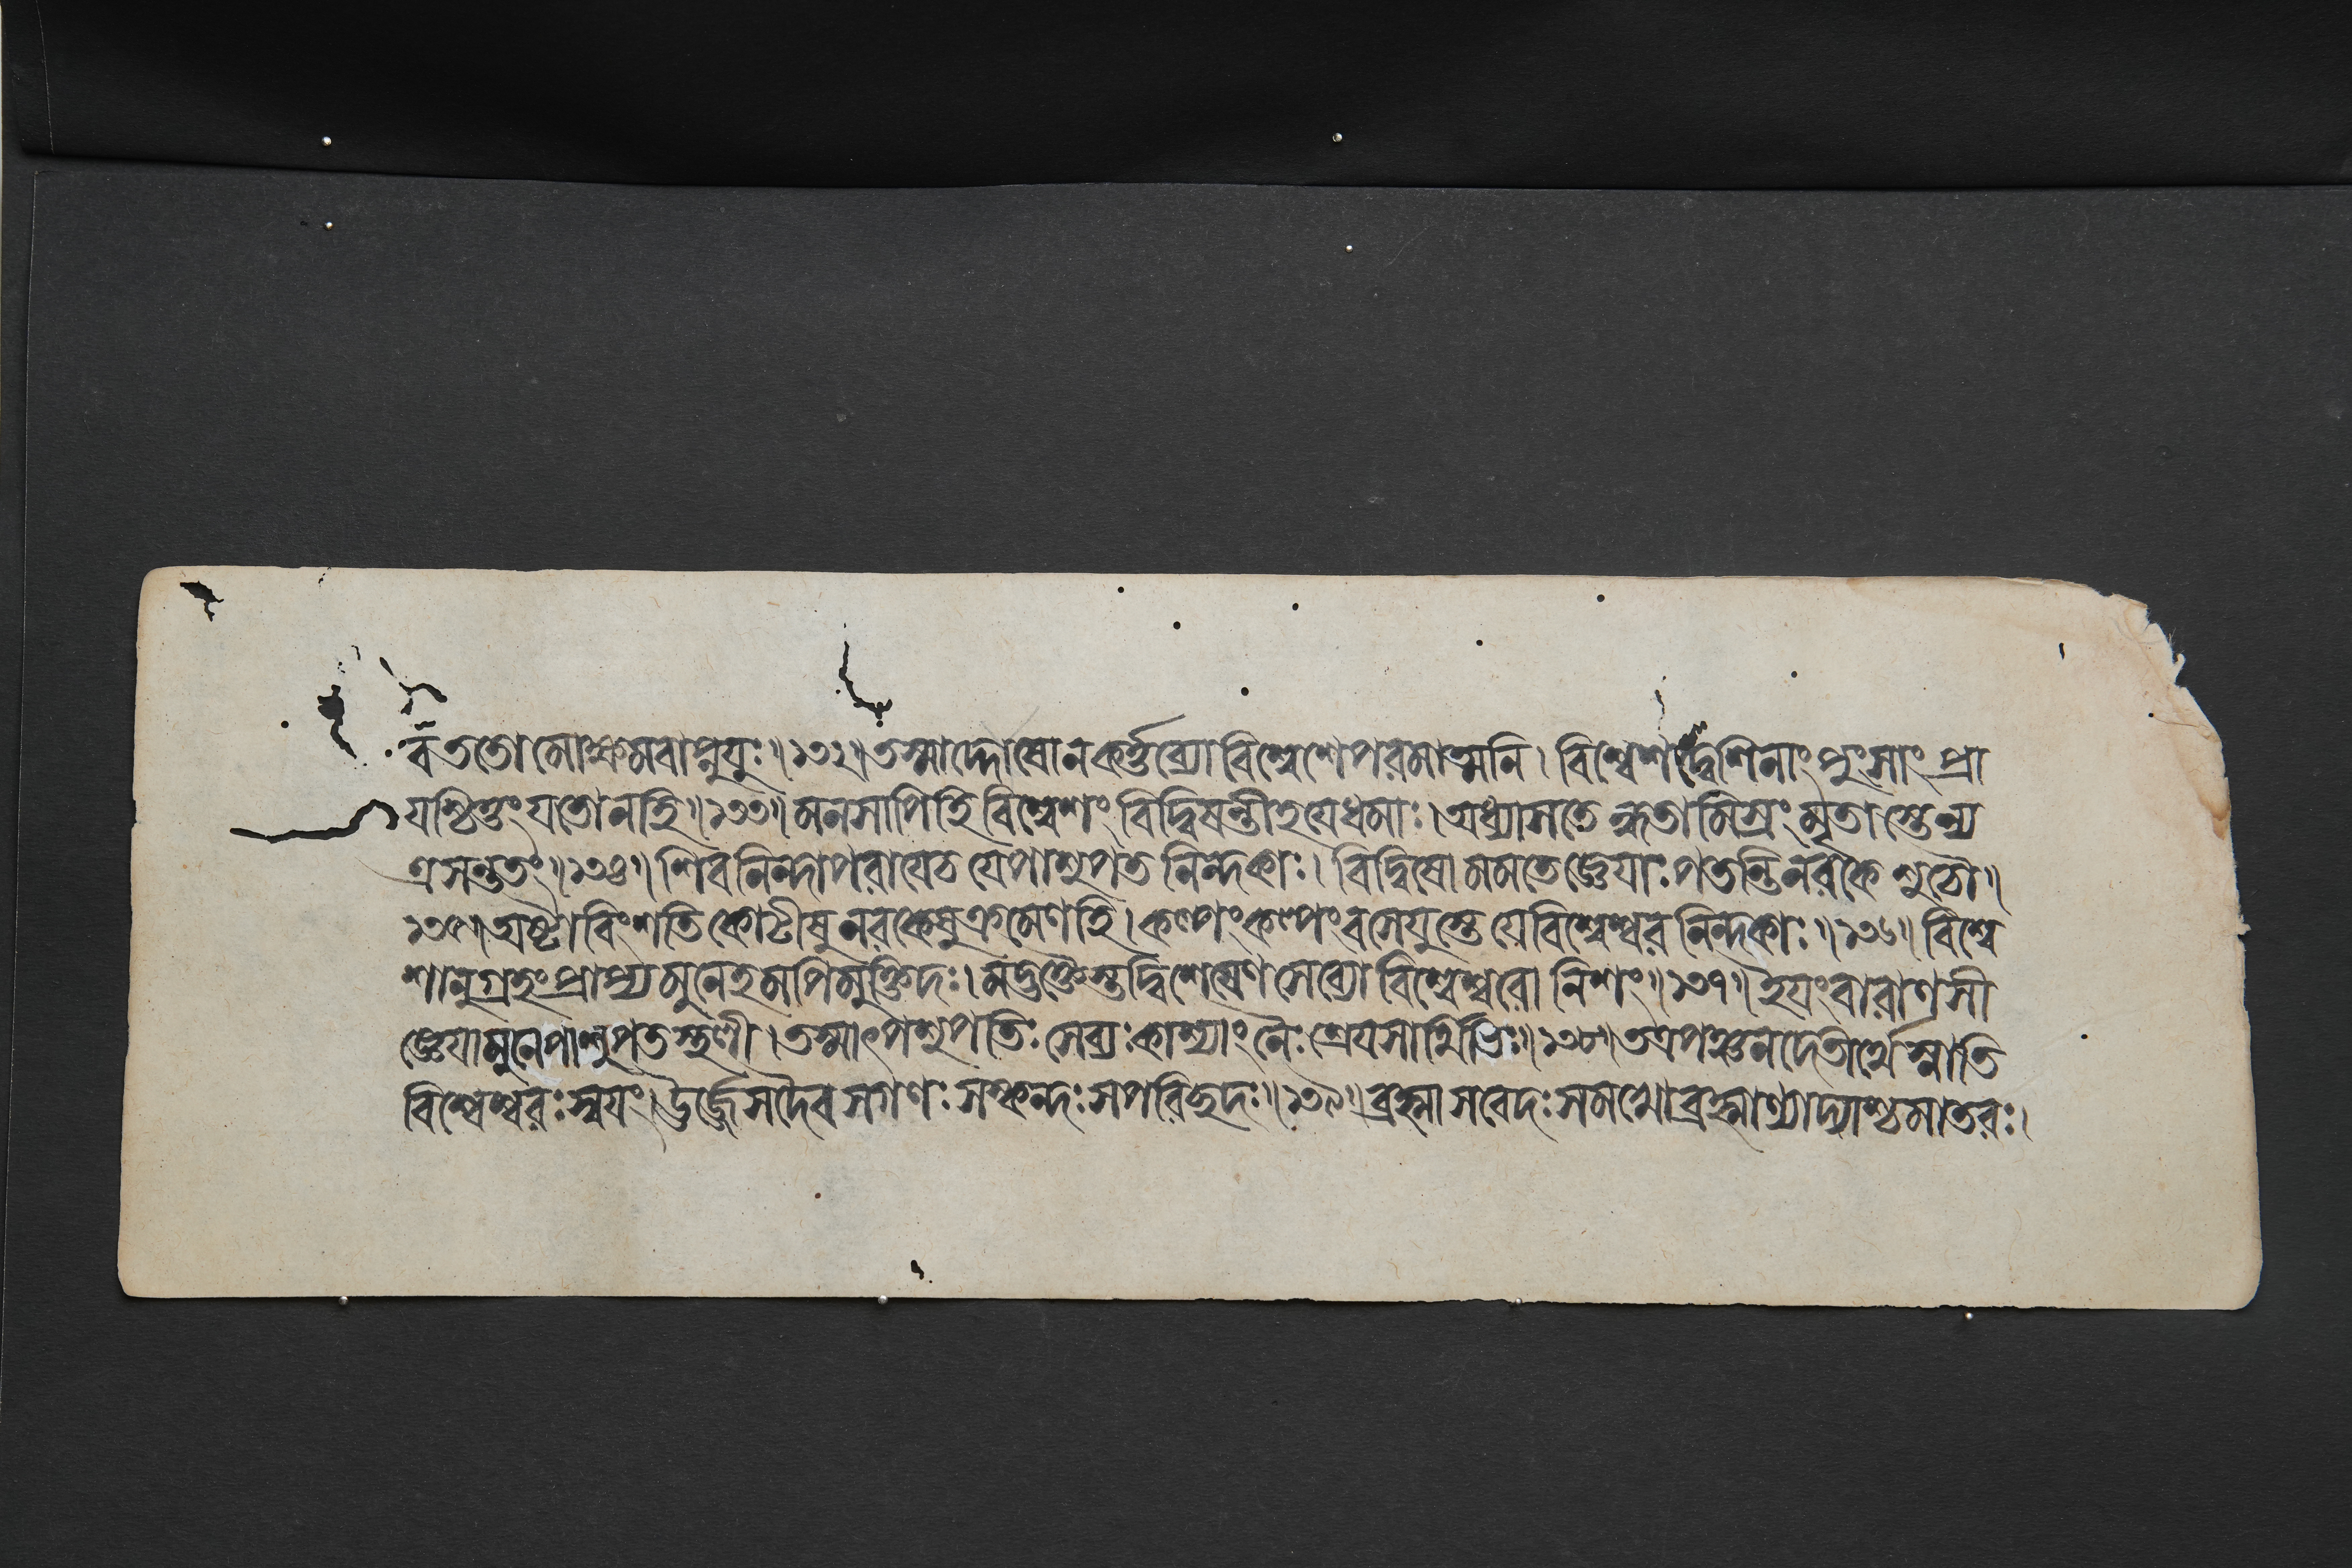 বঁ ততো মোক্ষমবাপ্নুযুঃ॥১৩২॥ তস্মাদ্দ্বেষোনকর্ত্তব্যো বিশ্বেশেপরমাত্মনি। বিশ্বেশদ্বেশিনাং পুংসাং প্রা
যশ্চিত্তং যতোনহি॥১৩৩॥ মনসাপিহি বিশ্বেশং বিদ্বিষন্তীহযেধমাঃ। অধ্যাসতে ন্ধতামিস্রং মৃতাস্তেন্য
ত্রসন্ততং॥১৩৪॥ শিবনিন্দাপরাযেচ যেপাশুপত নিন্দকাঃ। বিদ্বিষো মমতেজ্ঞেযাঃ পতন্তিনরকে শুচৌ॥
১৩৫॥ অষ্টাবিংশতি কোটীষু নরকেষুক্রমেণহি। কল্পংকল্পংবসেযুস্তে যেবিশ্বেশ্বর নিন্দকাঃ॥১৩৬॥ বিশ্বে
শানুগ্রহংপ্রাপ্য মুনেহমপিমুক্তিদঃ। মদ্ভক্তৈস্তদ্বিশেষেণ সেব্যো বিশ্বেশ্বরো নিশং॥১৩৭॥ ইযংবারাণসী
জ্ঞেযামুনেপাশুপতস্থলী। তস্মাৎপশুপতিঃ সেব্যঃকাশ্যাং নৈঃশ্রেযসার্থিভিঃ॥১৩৮॥ তত্রপঞ্চনদেতীর্থেস্নাতি
বিশ্বেশ্বরঃস্বযং। ঊর্জ্জেসদৈব সগণঃ সস্কন্দঃ সপরিচ্ছদঃ॥১৩৯॥ ব্রহ্মাসবেদঃসমখোব্রহ্মাণ্যাদ্যাশ্চমাতরঃ।